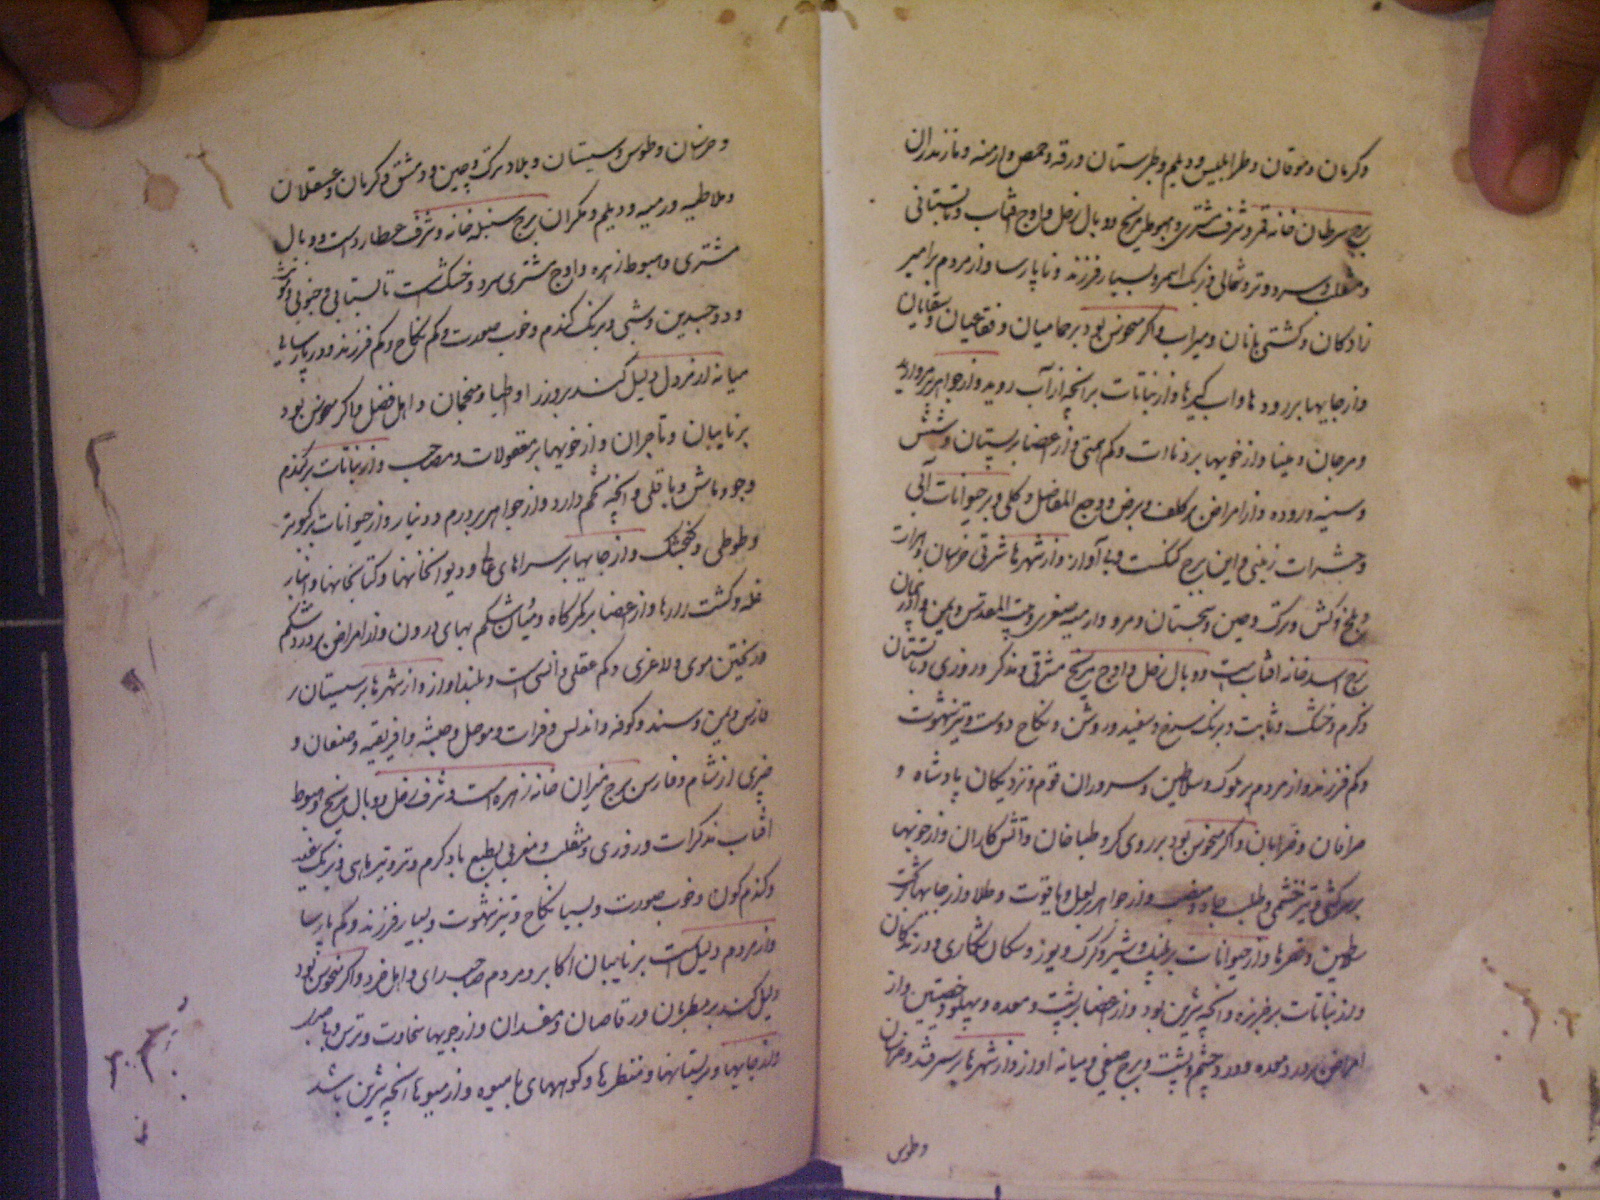 وکرمان و موقان و طرابلیس و دیلم و طبرستان و رقه و حمص و ارمنه و مازندران
برج سرطان خانه قمر و شرف مشتری و هبوط مریخ و وبال زحل و اوج افتاب و تابستانی
و منقلب و سرد و تر و شمالی و برنک اسمر و بسیار فرزند و ناپارسا و از مردم بر امیر
زادکان و کشتی بانان و میراب و اکر منحوس بود بر حمامیان و فقاعیان و سقایان
و از جایها بر رودها و اب کیرها و از نباتات بر انچه از آب روید و از جواهر بر مروارید
و مرجان و مینا و از خویها بر دناات و کم همتی و از اعضا بر پستان و شش
و سینه و روده و از امراض بر کلف و برص و وجع المفاصل و کلی و بر حیوانات آبی
و حشرات زمینی و این برج کنکست و بی آواز و از شهرها شرقی خراسان و هرات
و بلخ و کش و ترک و چین و سجستان و مرو و ارمنیه صغری و بیت المقدس و یمن و اذربیجان
برج اسد خانه افتاب است و وبال زحل و اوج مریخ مشرقی و مذکر و روزی و تابستان
و کرم و خشک و ثابت و برنک سرخ و سفید و روشن و نکاح دوست و تیز شهوت
و کم فرزند و از مردم بر ملوک و سلاطین و سروران قوم و نزدیکان پادشاه و
صرافان و ضرابان و اکر منحوس بود بر رویکر و طباخان و آتش کاران و از خویها
بر سرکشی و تیز خشمی و طلب جاه و منصب و از جواهر بر لعل و یاقوت و طلا و از جایها بر تخت
سلاطین و قصرها و از حیوانات بر پلنک و شیر و کرک و یوز و سکان شکاری و درندکان
و از نباتات بر خربزه و انچه شیرین بود و از اعضا بر پشت و معده و پهلو و خصیتین و از
امراض بر درد معده و درد چشم و پشت و برج صیفی و میانه اواز و از شهرها بر سمرقند و خراسان
و طوس
و خراسان و طوس و سیستان و بلاد ترک و چین و دمشق و کرمان و عسقلان
و ملاطیه و رمیه و دیلم و مکران برج سنبله خانه و شرف عطارد است و وبال
مشتری و هبوط زهره و اوج مشتری سرد و خشک است تابستانی و جنوبی و مونث
و ذو جسدین و شبی و برنک کندم و خوب صورت و کم نکاح و کم فرزند و در پارسایی
میانه از مردم دلیل کند بر وزرا و اطبا و منجمان و اهل فضل و اکر منحوس بود
بر نایبان و تاجران و از خویها بر معقولات و مصاحب و از نباتات بر کندم
و جو و ماش و باقلی و انچه تخم دارد و از جواهر بر درم و دینار و از حیوانات بر کبوتر
و طوطی و کنجشک و از جایها بر سراهای و دیوانخانها و کتابخانها و انبار
غله و کشت زارها و از اعضا بر کمرکاه و میان شکم بهای درون و از امراض بر درد شکم
و ریختن موی و لاغری و کم عقلی و انسی است و بلند اواز و از شهرها بر سیستان
فارس و یمن و سند و کوفه و اندلس و فرات و موصل و حبشه و افریقیه و صنعان و
چیزی از شام و فارس برج میزان خانه زهره است و شرف زحل و وبال مریخ و هبوط
افتاب مذکر است و روزی و منقلب و مغربی بطبع باد کرم و تر و برنک سفید
و کندم کون و خوب صورت و بسیار نکاح و تیز شهوت و بسیار فرزند و کم پارسا
و از مردم دلیل است بر نایبان اکابر و مردم صاحب رای و اهل خرد و اکر منحوس بود
دلیل کند بر مطربان و رقاصان و مفسدان و از خویها سخاوت و ترس
و از جایها بر بستانها و منظرها و کوههای با میوه و از میوها انچه شیرین باشد